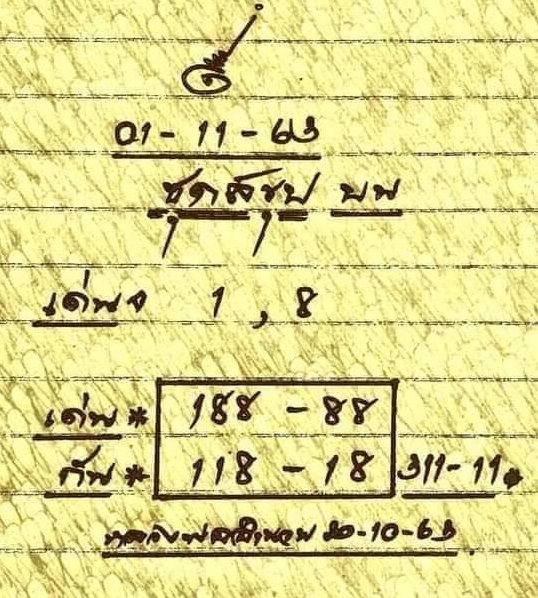 01 - 11 - 63
ชุดสรุป บน
เด่น 1 , 8
เด่น * 188 - 88
กัน * 118 - 18 311-11
20-10-63